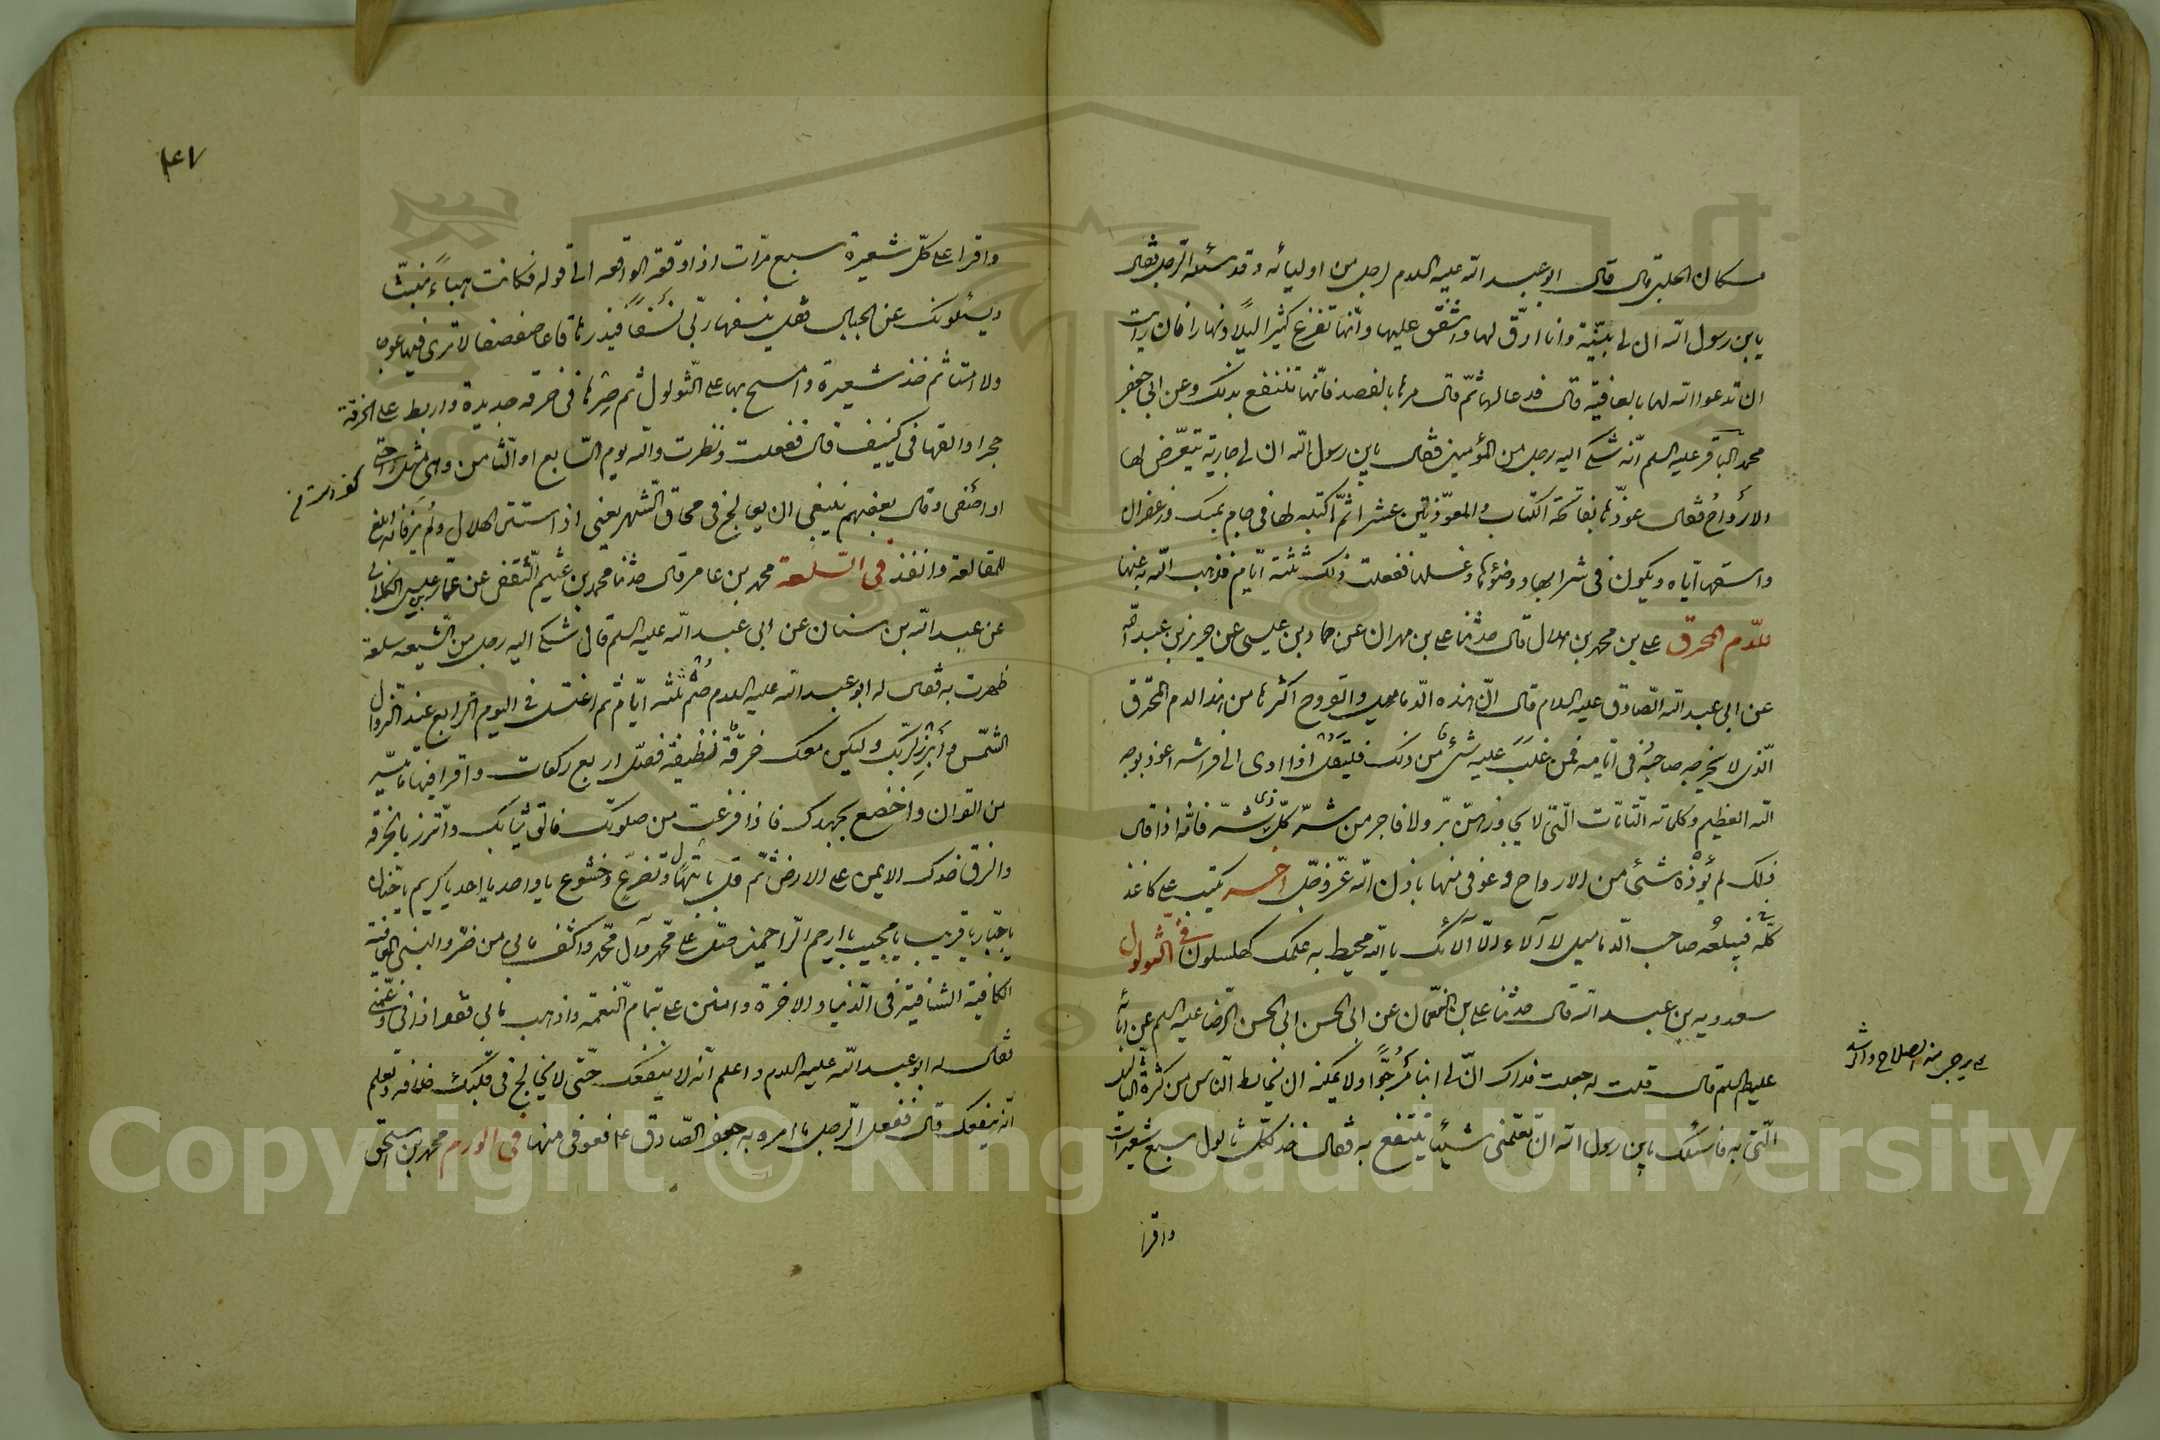 مسكان الحلبى قال قال ابو عبد الله عليه السلام لرجل من اوليائه وقد سئله الرجل فقال
يابن رسول الله ان لى بنية وانا ارق لها واشفق عليها وانها تفزع كثيرا ليلا ونهارا فان رايت
ان تدعو الله لها بالعافية قال فدعا لها ثم قال مرها بالفصد فانها تنتفع بذلك وعن ابى جعفر
محمد الباقر عليه السلم انه شكى اليه رجل من المؤمنين فقال يابن رسول الله ان لى جارية يتعرض لها
الارواح فقال عوذها بفاتحة الكتاب والمعوذتين عشرا ثم اكتبه لها فى جام بمسك وزعفران
واسقها اياه ويكون فى شرابها ووضوئها وغسلها ففعلت ذلك ثلثة ايام فذهب الله به عنها
للدم المحرق على بن محمد بن هلال قال حدثنا على بن مهران عن حماد بن عيسى عن حريز بن عبد الله
عن ابى عبد الله الصادق عليه السلام قال ان هذه الدماميل والقروح اكثرها من هذا الدم المحترق
الذى لا يخرجه صاحبه فى ايامه فمن غلب عليه شئ من ذلك فليقل اذا اوى الى فراشه اعوذ بوجه
الله العظيم وكلماته التامات التى لا يجاوزهن بر ولا فاجر من شر كل ذى شر فانه اذا قال
ذلك لم يؤذه شئ من الارواح وعوفى منها باذن الله عز وجل اخر يكتب على كاغذ
كله فيبلعه صاحب الدماميل لا آلاء الا آلائك يا الله محيط به علمك كهلسلون فى الثولول
سعدويه بن عبد الله قال حدثنا على بن النعمان عن ابى الحسن ابى الحسن الرضا عليه السلم عن ابائه
عليهم السلم قال قلت له جعلت فداك ان لى ابنا مرجوا ولا يمكنه ان يخالط الناس من كثرة الثآليل
التى به فاسئلك يابن رسول الله ان تعلمنى شيئا ينتفع به فقال خذ لكل ثالول سبع شعيرات
واقرا
اى يرجى منه الصلاح والرشد
واقرا على كل شعيرة سبع مرات اذا وقعت الواقعه الى قوله فكانت هباء منبثا
ويسئلونك عن الجبال فقل ينسفها ربى نسفا فيذرها قاعا صفصفا لا ترى فيها عوجا
ولا امتا ثم خذ شعيرة وامسح بها على الثولول ثم صرها فى خرقه جديدة واربط على الخرقة
حجرا والقها فى كنيف قال ففعلت ونظرت والله يوم السابع او الثامن وهى مثل راحتى
او اصفى وقال بعضهم ينبغى ان يعالج فى محاق الشهر يعنى اذا استتر الهلال ولم ير فانه ابلغ
للمقالعة وانفذ فى السلعة محمد بن عامر قال حدثنا محمد بن عليم الثقفى عن عمار بن عيسى الكلابى
عن عبد الله بن سنان عن ابى عبد الله عليه السلم قال شكى اليه رجل من الشيعه سلعة
ظهرت به فقال له ابو عبد الله عليه السلام صم ثلثه ايام ثم اغتسل فى اليوم الرابع عند الزوال
الشمس وابرز لربك وليكن معك خرقة نظيفة فصل اربع ركعات واقرا فيها ما تيسر
من القران واخضع بجهدك فاذا فرغت من صلوتك فالق ثيابك واتزر بالخرقه
والزق خدك الايمن على الارض ثم قل بابتهال وتضرع وخشوع يا واحد يا احد يا كريم يا حنان
يا جبار يا قريب يا مجيب يا ارحم الراحمين صل على محمد وآل محمد واكشف ما بى من ضر والبسنى العافية
الكافية الشافية فى الدنيا والاخرة وامنن على بتمام النعمة واذهب ما بى فقد اذانى وغمنى
فقال له ابو عبد الله عليه السلام واعلم انه لا ينفعك حتى لا يخالج فى قلبك خلافه وتعلم
انه ينفعك قال ففعل الرجل ما امره به جعفر الصادق ع فعوفى منها فى الورم محمد بن اسحق